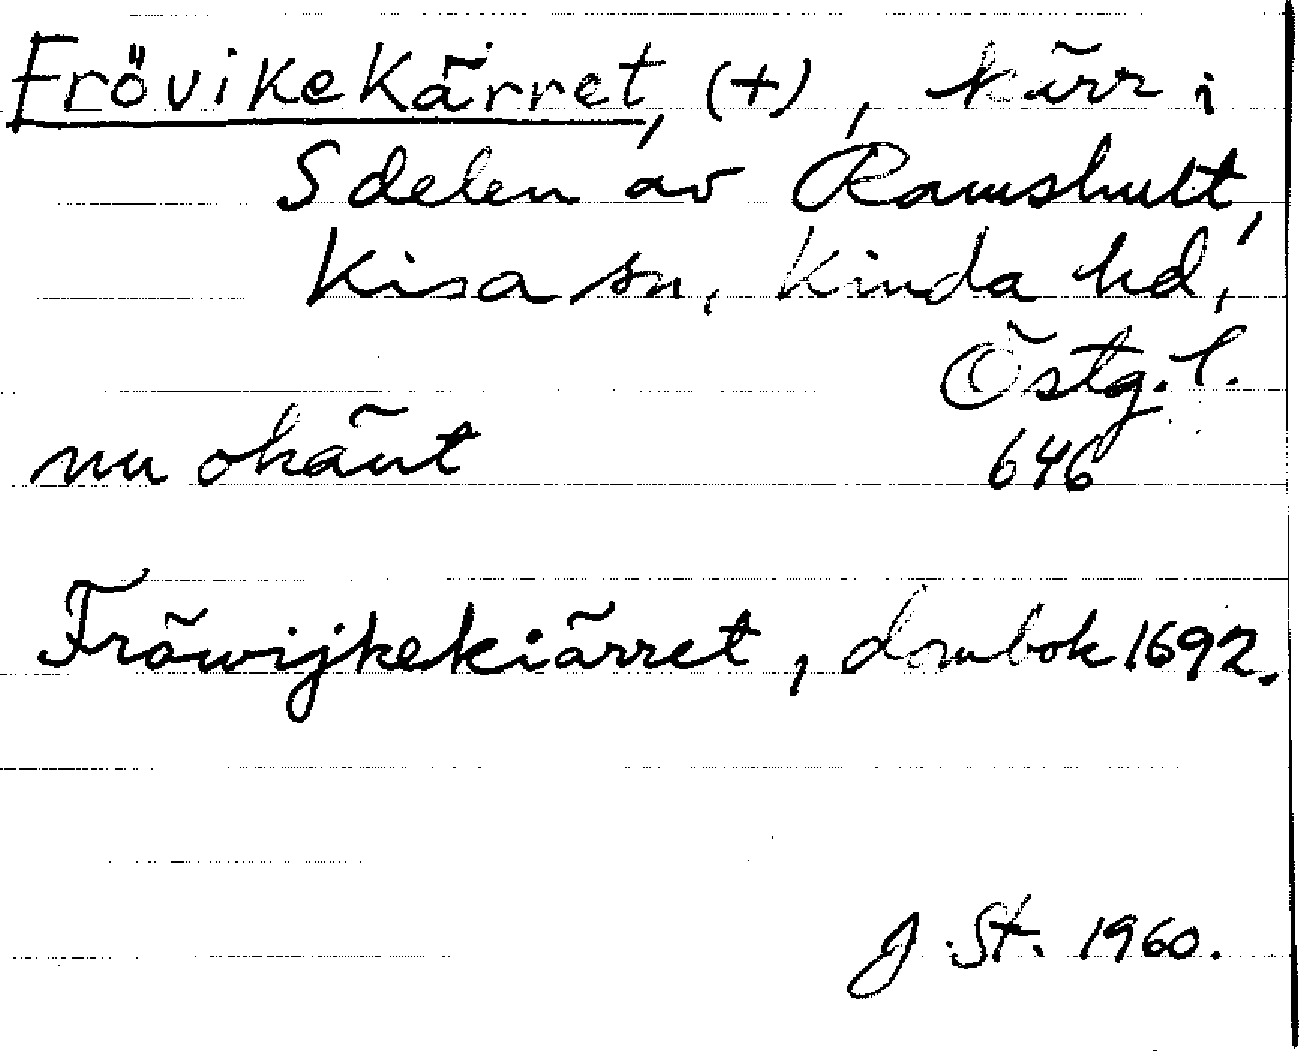 Frövikekärret, (+), kärr i
S delen av Ramshult,
Kisa sn, Kinda hd,
Östg. l.
nu okänt 646
Fröwijkekiärret, dombok 1692.
J. St. 1960.